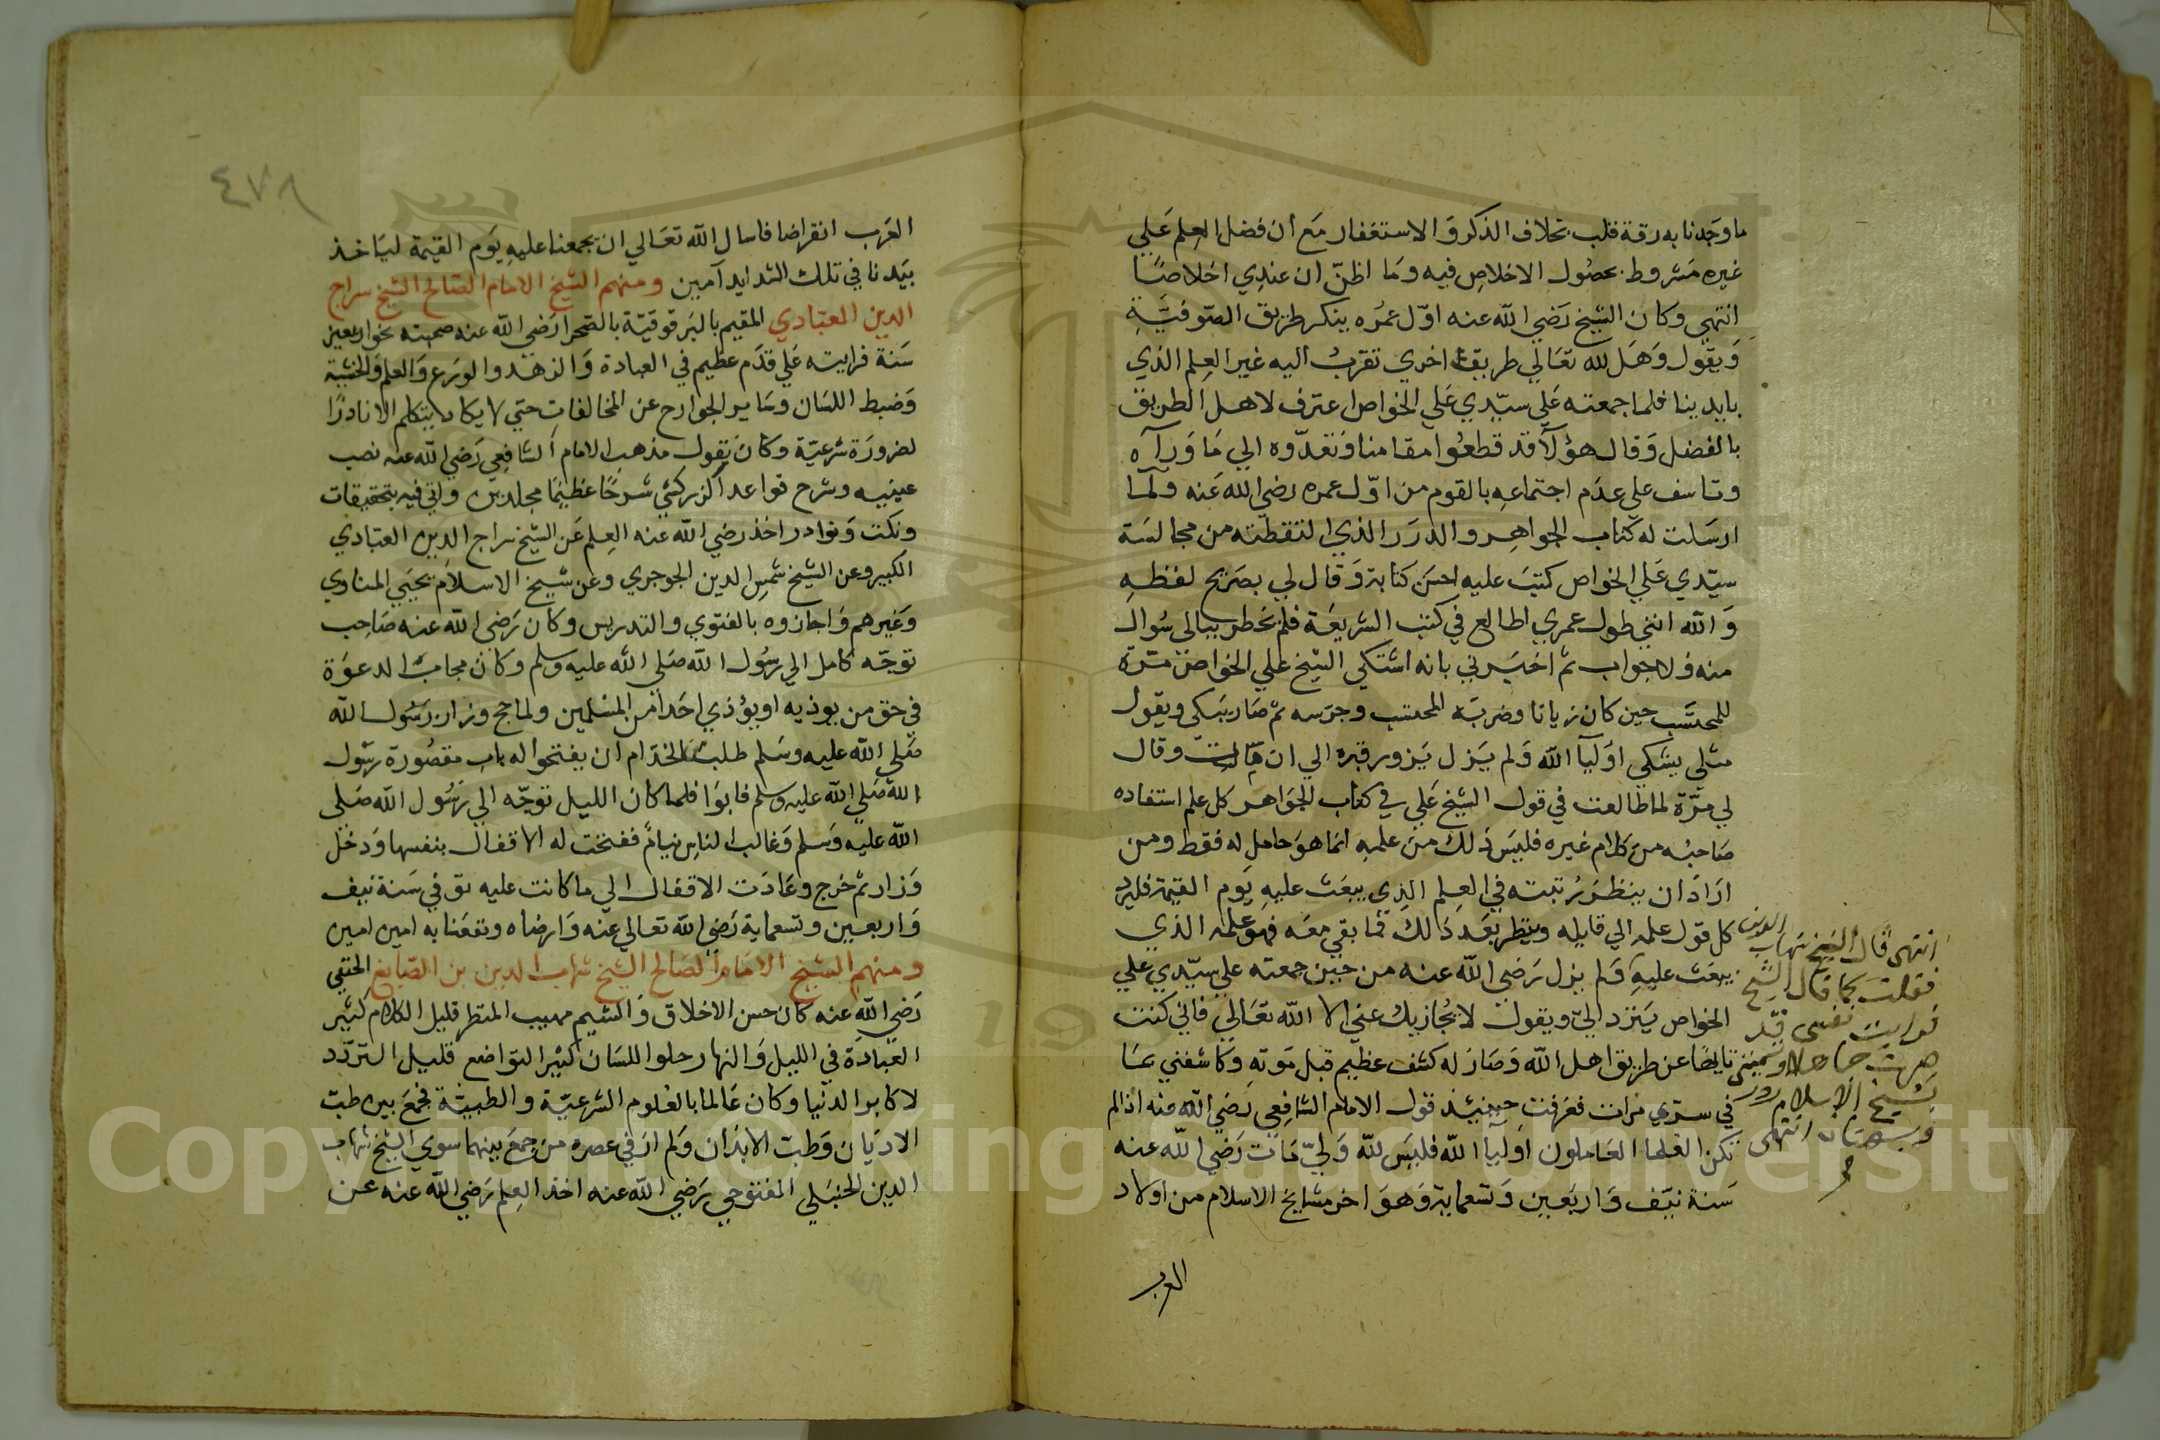 ما وجدنا به رقة قلب بخلاف الذكر والاستغفار مع أن فضل العلم علي
غيره مشروط بحصول الاخلاص فيه وما اظن ان عندي اخلاصًا
انتهي وكان الشيخ رضي الله عنه اول عمره ينكر طريق الصوفية
ويقول وهل لله تعالي طريقة اخري تقرب اليه غير العلم الذي
بايدينا فلما جمعته علي سيدي علي الخواص اعترف لاهل الطريق
بالفضل وقال هؤلآ قد قطعوا مقامنا وتعدوه الي ما ورآه
وتاسف علي عدم اجتماعه بالقوم من اول عمره رضي الله عنه ولما
ارسلت له كتاب الجواهر والدرر الذي التقطته من مجالسة
سيدي علي الخواص كتب عليه احسن كتابة وقال لي بصريح لفظه
والله انني طول عمري اطالع في كتب الشريعة فلم يخطر ببالي سوال
منه ولا جواب ثم اخبرني بانه اشتكي الشيخ علي الخواص مرة
للمحتسب حين كان زياتا وضربه المحتسب وجرسه ثم صار يبكي ويقول
مثلي يشكي اوليآ الله ولم يزل يزور قبره الي ان مات وقال
لي مرة لما طالعت في قول الشيخ علي في كتاب الجواهر كل علم استفاده
صاحبه من كلام غيره فليس ذلك من علمه انما هو حامل له فقط ومن
اراد ان ينظر رتبته في العلم الذي يبعث عليه يوم القيمة فليرد
كل قول علمه الي قايله وينظر بعد ذالك فما بقي معه فهو علمه الذي
يبعث عليه ولم يزل رضي الله عنه من حين جمعته علي سيدي علي
الخواص يتردد الي ويقول لا يجازيك عني الا الله تعالي فاني كنت
تايهًا عن طريق اهل الله وصار له كشف عظيم قبل موته وكاشفني بما
في سري مرات فعرفت حينئذ قول الامام الشافعي رضي الله عنه اذا لم
تكن العلما العاملون اوليآ الله فليس لله ولي مات رضي الله عنه
سنة نيف واربعين وتسعماية وهو اخر مشايخ الاسلام من اولاد
العرب
انتهى قال الشيخ شهاب الدين
فقلت كما قال الشيخ
فرايت نفسي قد
صرت جاهلا وسميتي
شيخ الاسلام زور
وبهتان انتهى
٤٧٨
العرب انقراضا فاسال الله تعالي ان يجمعنا عليه يوم القيمة لياخذ
بيدنا في تلك الشدايد آمين ومنهم الشيخ الامام الصالح الشيخ سراج
الدين العبادي المقيم بالبرقوقية بالصحرا رضي الله عنه صحبته نحو اربعين
سنة فرايته علي قدم عظيم في العبادة والزهد والورع والعلم والخشية
وضبط اللسان وساير الجوارح عن المخالفات حتي لا يكاد يتكلم الا نادرًا
لضرورة شرعية وكان يقول مذهب الامام الشافعي رضي الله عنه نصب
عينيه وشرح قواعد الزركشي شرحًا عظيمًا مجلدين واتي فيه بتحقيقات
ونكت ونوادر اخذ رضي الله عنه العلم عن الشيخ سراج الدين العبادي
الكبير وعن الشيخ شمس الدين الجوجري وعن شيخ الاسلام يحيي المناوي
وغيرهم واجازوه بالفتوي والتدريس وكان رضي الله عنه صاحب
توجه كامل الي رسول الله صلي الله عليه وسلم وكان مجاب الدعوة
في حق من يوذيه او يؤذي احدا من المسلمين ولما حج وزار رسول الله
صلي الله عليه وسلم طلب الخدام ان يفتحوا له باب مقصورة رسول
الله صلي الله عليه وسلم فابوا فلما كان الليل توجه الي رسول الله صلي
الله عليه وسلم وغالب الناس نيام ففتحت له الاقفال بنفسها ودخل
وزار ثم خرج وعادت الاقفال الي ما كانت عليه توفي سنة نيف
واربعين وتسعماية رضي الله تعالي عنه وارضاه ونفعنا به امين امين
ومنهم الشيخ الامام الصالح الشيخ شهاب الدين بن الصايغ الحنفي
رضي الله عنه كان حسن الاخلاق والشيم مهيب المنظر قليل الكلام كثير
العبادة في الليل والنهار حلو اللسان كثير التواضع قليل التردد
لاكابر الدنيا وكان عالما بالعلوم الشرعية والطبية فجمع بين طب
الاديان وطب الابدان ولم ار في عصره من جمع بينهما سوي الشيخ شهاب
الدين الحنبلي الفتوحي رضي الله عنه اخذ العلم رضي الله عنه عن
Copyright © King Saud University